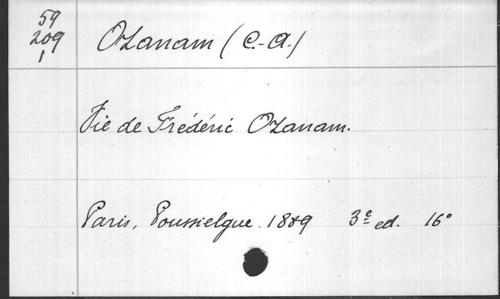 59
209
1
Ozanam (C.-A.)
Vie de Frédéric Ozanam.
Paris, Poussielgue. 1889 3e ed. 16°